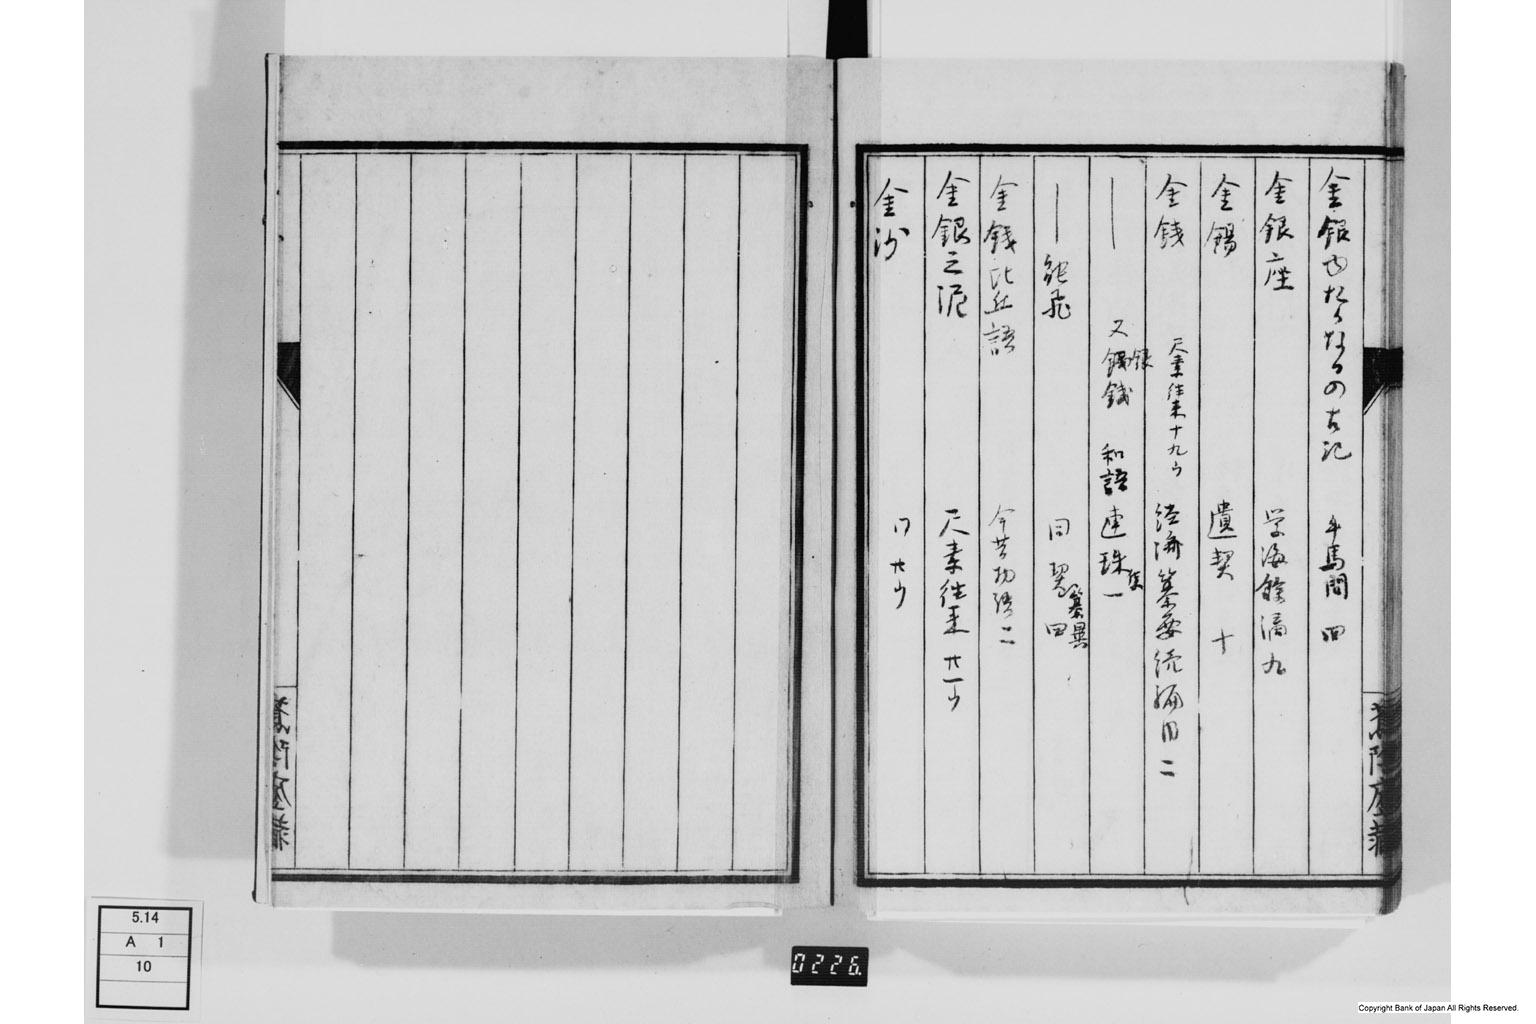 金銀ゆたかなるの古記 牛馬問 四
金銀座 学海餘滴 九
金錫 遺契 十
金銭 尺素往来十九ウ 経済纂要続編 二
｜ 又銀銭 和語連珠集 一
｜能飛 同 纂異 四
金銭比丘語 今昔物語 二
金銀之泥 尺素往来 廿一ウ
金沙 同 廿ウ
5.14
A 1
10
0226.
Copyright Bank of Japan All Rights Reserved.